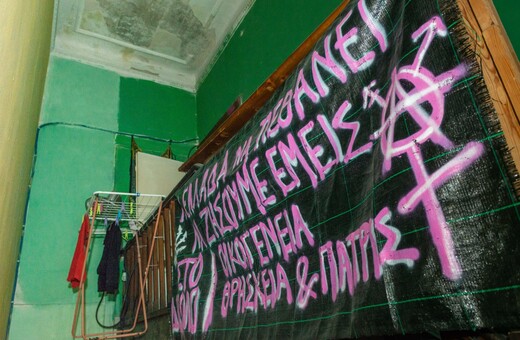 ΝΑ ΠΕΘΑΝΕΙ
ΝΑ ΖΗΣΟΥΜΕ ΕΜΕΙΣ
ΣΤΟ ΟΙΚΟΓΕΝΕΙΑ
ΘΡΗΣΚΕΙΑ & ΠΑΤΡΙΣ